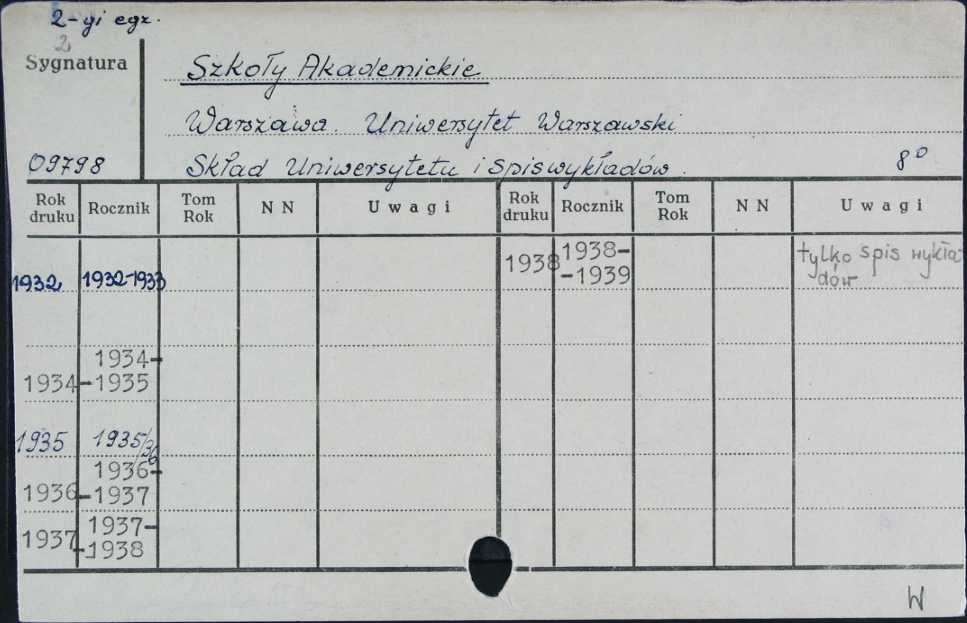 2-gi egz.
2
Sygnatura
Szkoły Akademickie
Warszawa. Uniwersytet Warszawski
09798
Skład Uniwersytetu i spis wykładów.
8°
Rok druku Rocznik Tom Rok N N Uwagi Rok druku Rocznik Tom Rok N N Uwagi
1932 1932-1933
1938 1938-
-1939
tylko spis wykła-
dów
1934-
1934 -1935
1935 1935/36
1936-
1936 -1937
1937-
1937 -1938
W